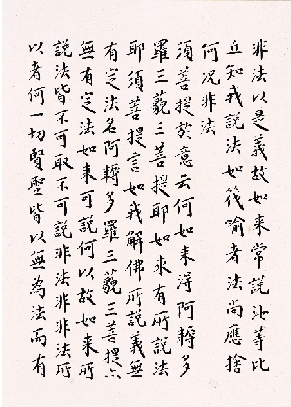 非法以是義故如來常說汝等比
丘知我說法如筏喻者法尚應捨
何況非法
須菩提於意云何如來得阿耨多
羅三藐三菩提耶如來有所說法
耶須菩提言如我解佛所說義無
有定法名阿耨多羅三藐三菩提亦
無有定法如來可說何以故如來所
說法皆不可取不可說非法非非法所
以者何一切賢聖皆以無為法而有